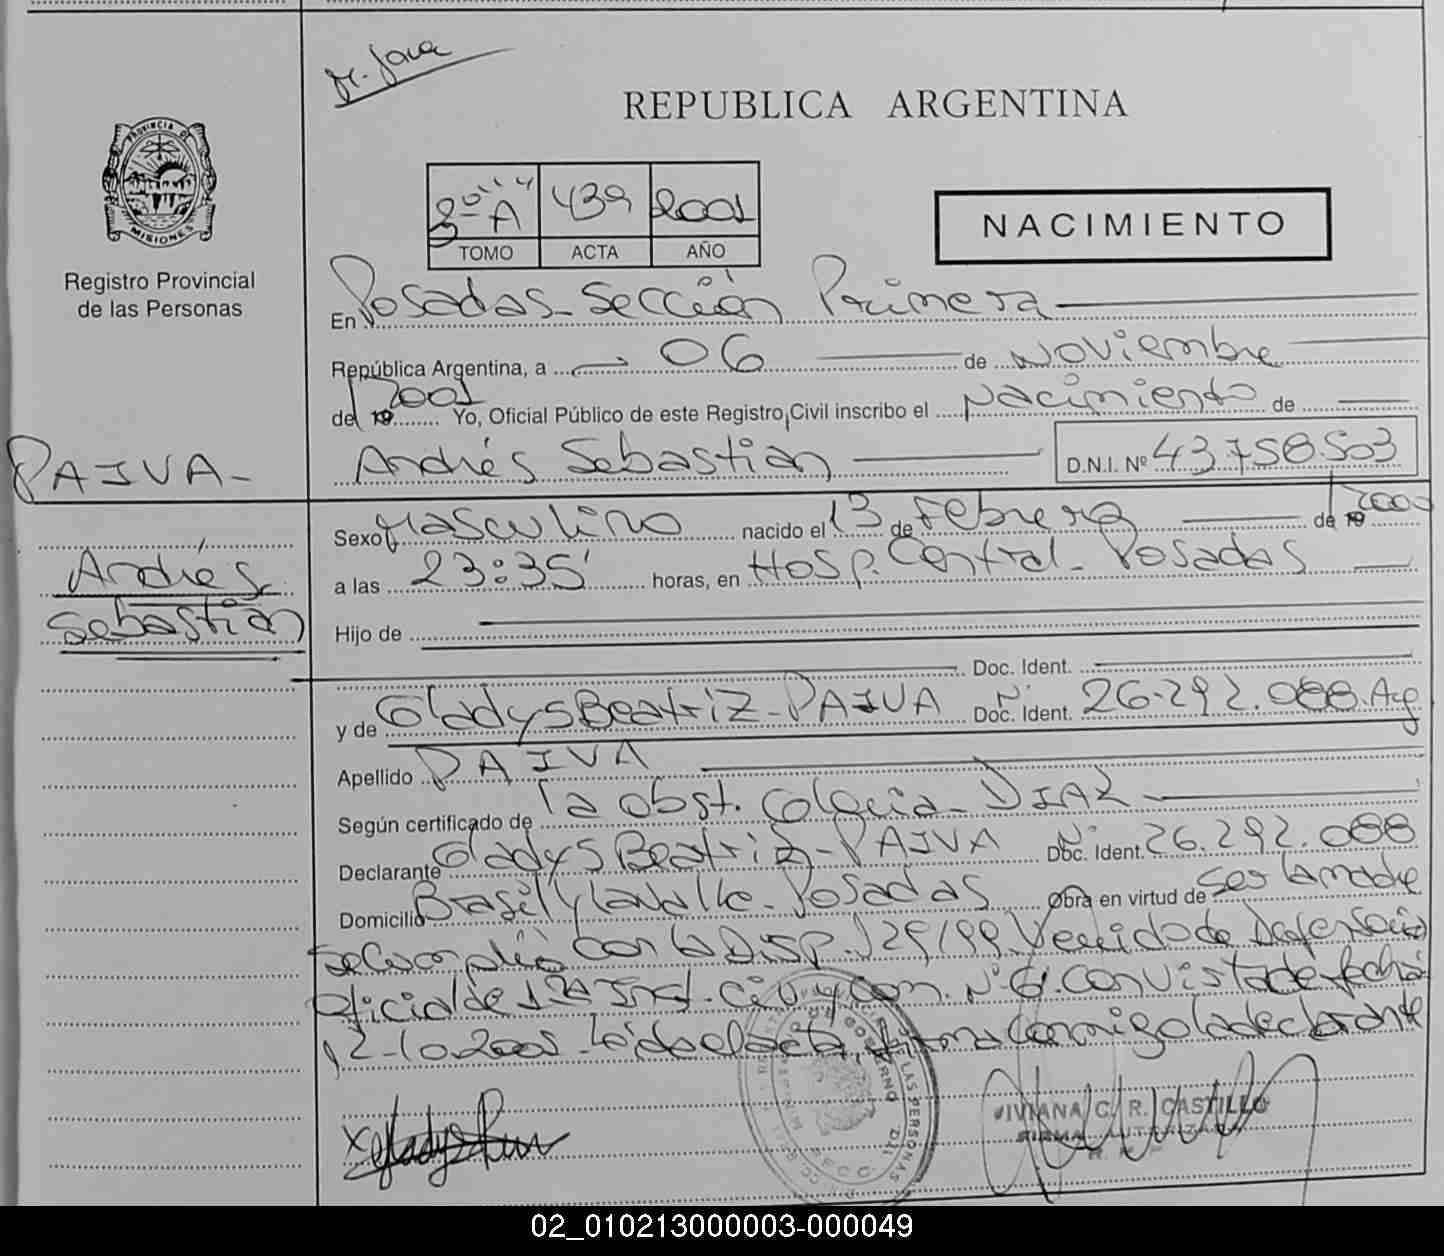 REPUBLICA ARGENTINA
PROVINCIA DE
MISIONES
Registro Provincial
de las Personas
439 2001
TOMO ACTA AÑO
NACIMIENTO
En Posadas - Sección Primera
República Argentina, a 06 de Noviembre
del 2001 Yo, Oficial Público de este Registro Civil inscribo el Nacimiento de
PAIVA - Andrés Sebastián D.N.I. Nº 43.758.503
Sexo Masculino nacido el 13 de Febrero de 2000
Andrés
a las 23:35' horas, en Hosp. Central - Posadas
Sebastián
Hijo de
Doc. Ident.
y de Gladys Beatriz - PAIVA Doc. Ident. Nº 26.292.088. Arg
Apellido PAIVA
Según certificado de la obst. DIAZ
Declarante Gladys Beatriz - PAIVA Doc. Ident. Nº 26.292.088
Domicilio Brasil y Lavalle - Posadas Obra en virtud de Ser la madre
Se cumplió con la Disp. 129/99. Venido de Defensoría
Oficial de 1ra Inst. Civ. y Com. Nº 6. con vista de fecha
12-10-2001 - Leída el acta, firma conmigo la declarante
VIVIANA C. R. CASTILLO
FIRMA AUTORIZADA
02_010213000003-000049